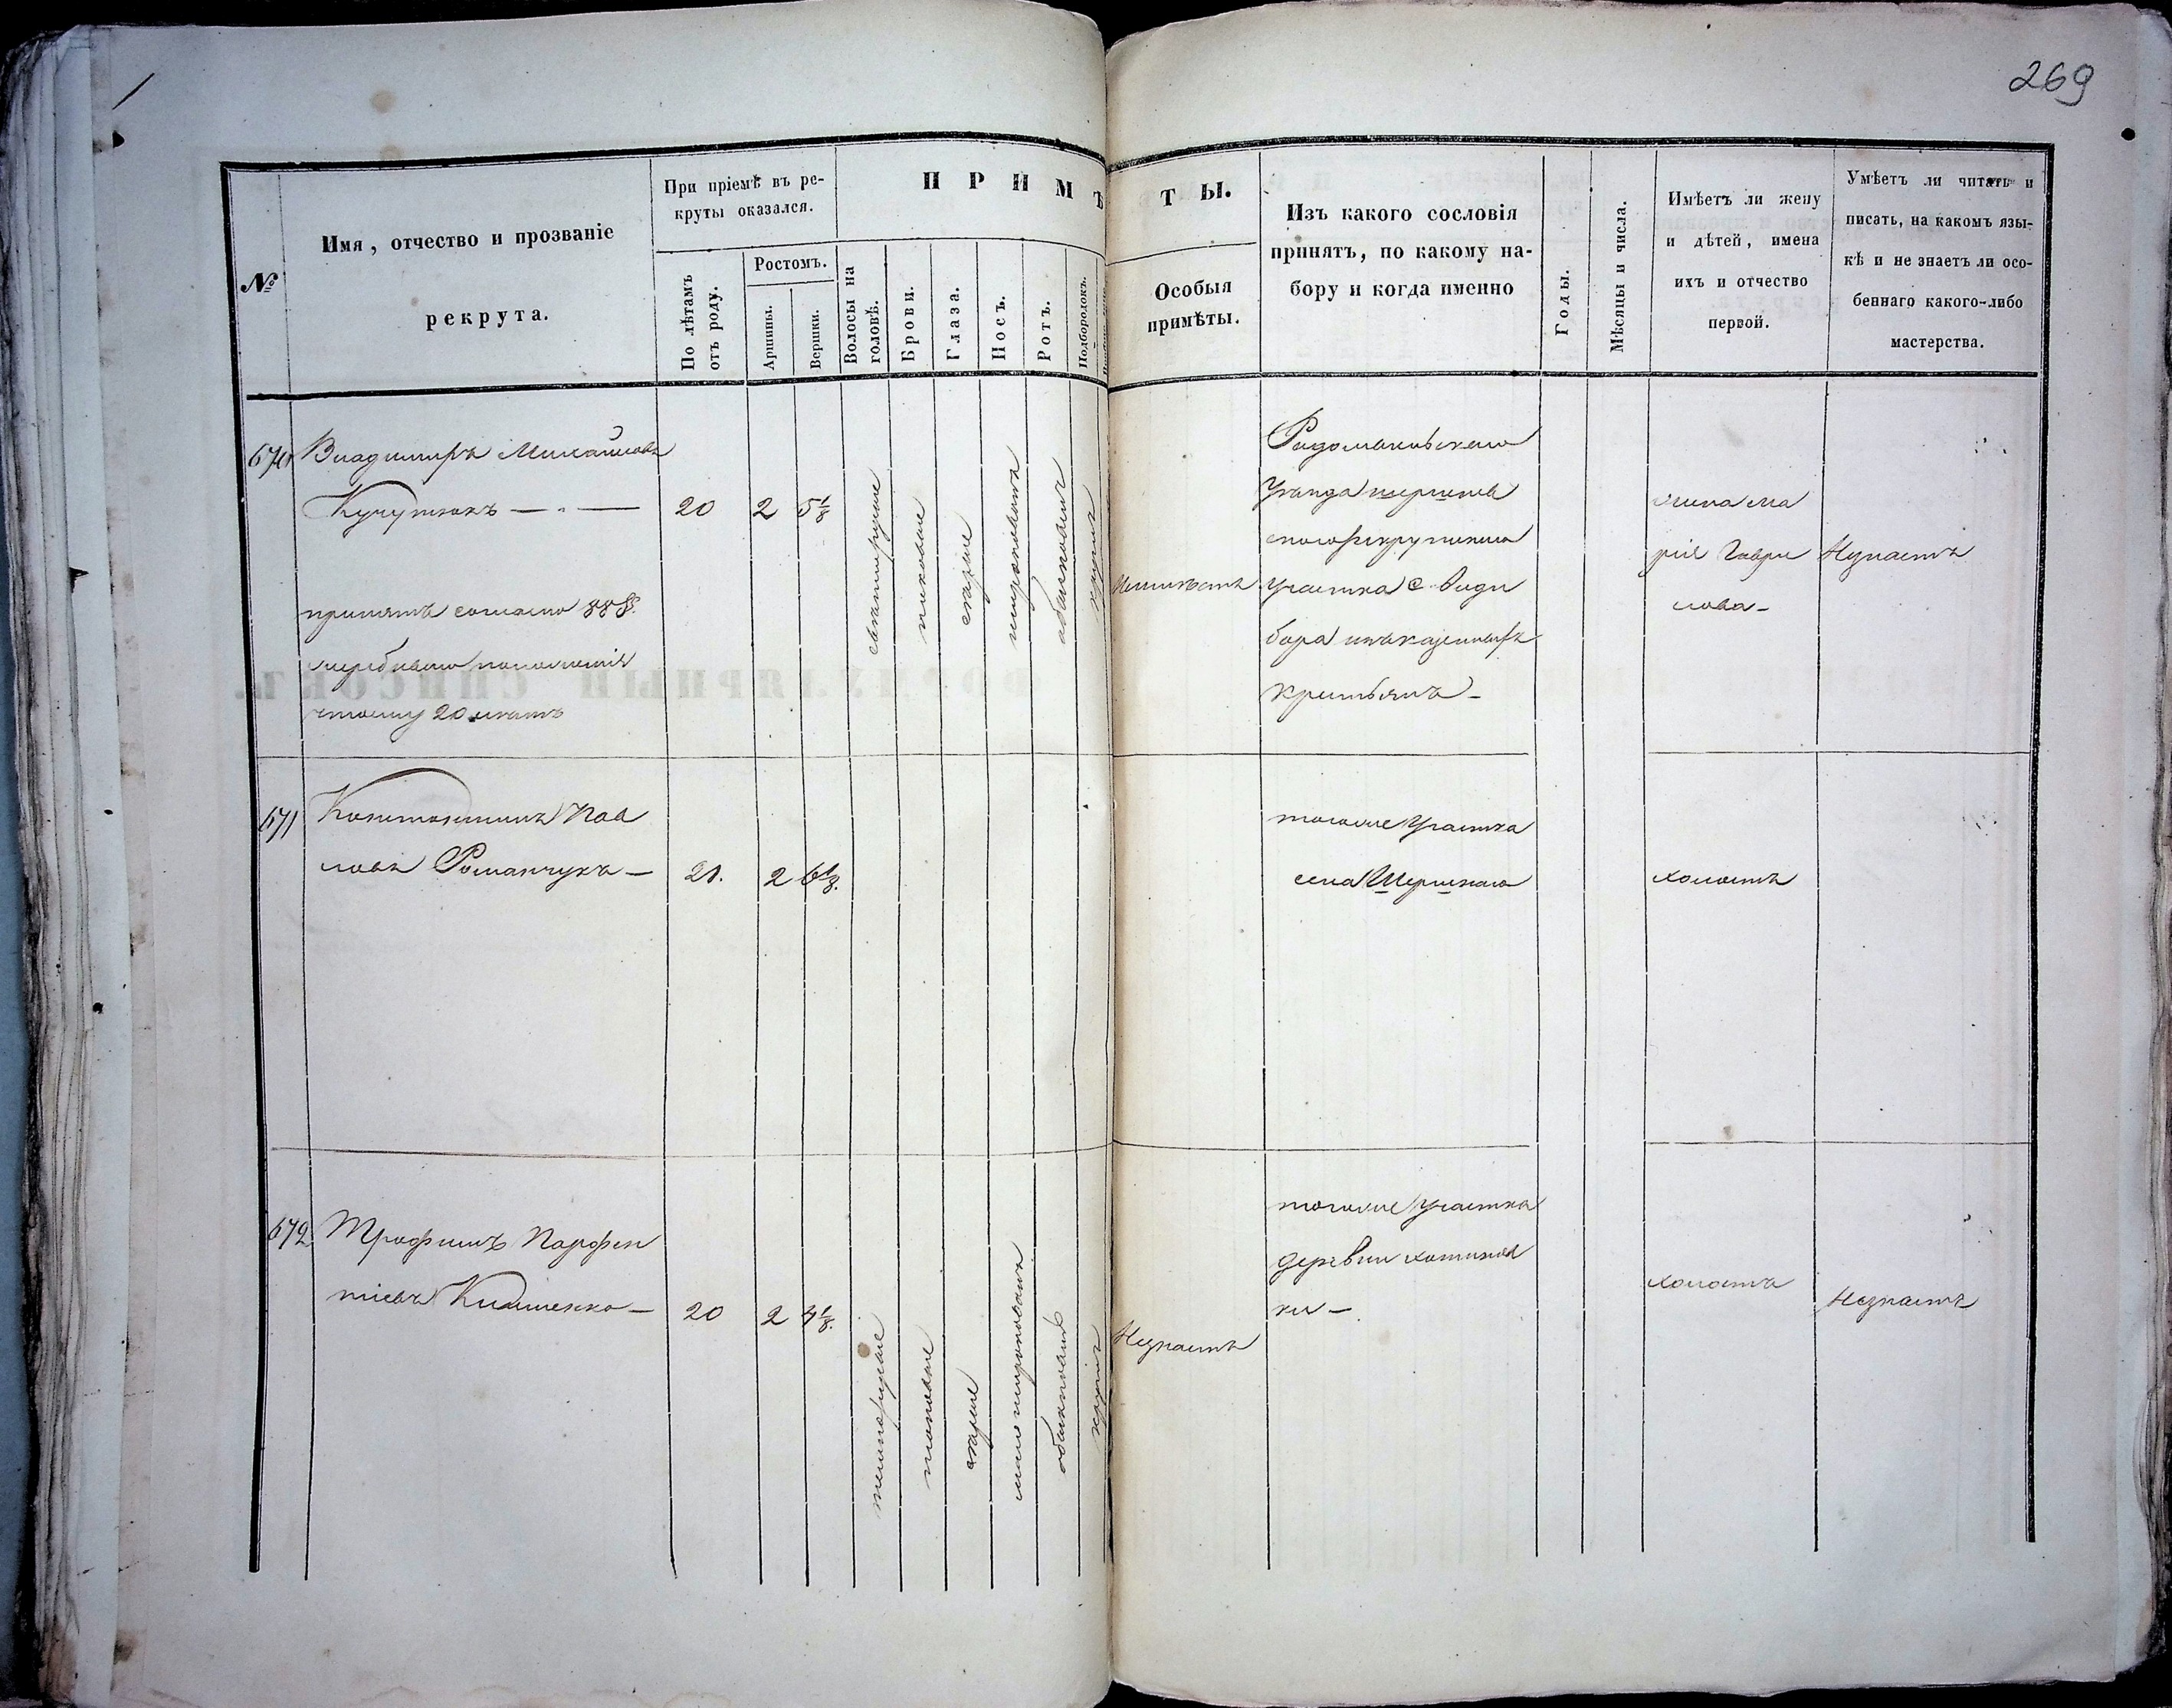 269
№
Имя, отчество и прозваніе
рекрута.
При пріемѣ въ ре-
круты оказался.
По лѣтамъ
отъ роду.
Ростомъ.
Аршины.
Вершки.
ПРИМѢ
Волосы на
головѣ.
Брови.
Глаза.
Носъ.
Ротъ.
Подбородокъ.
ТЫ.
Особыя
примѣты.
Изъ какого сословія
принятъ, по какому на-
бору и когда именно
Годы.
Мѣсяцы и числа.
Имѣетъ ли жену
и дѣтей, имена
ихъ и отчество
первой.
Умѣетъ ли читать и
писать, на какомъ язы-
кѣ и не знаетъ ли осо-
беннаго какого-либо
мастерства.
670
Владимиръ Михайловъ
принятъ согласно
20 лѣтъ
20
2
5 1/8
свѣтлорусые
карие
широковатъ
обыкновенъ
круглъ
Радомысльскаго
Уѣзда
участка с.
бора изъ казенныхъ
крестьянъ -
жена Ма
рія Гаври
лова -
Незнаетъ
671
Константинъ Пав
ловъ Романчукъ -
21.
2
6 1/8.
тогоже Участка
села
холостъ
672
Трофимъ Парфен
тіевъ
20
2
4 1/8.
темнорусые
карие
мало широковатъ
обыкновенъ
круглъ
Незнаетъ
тогоже Участка
деревни
ки -
холостъ
Незнаетъ